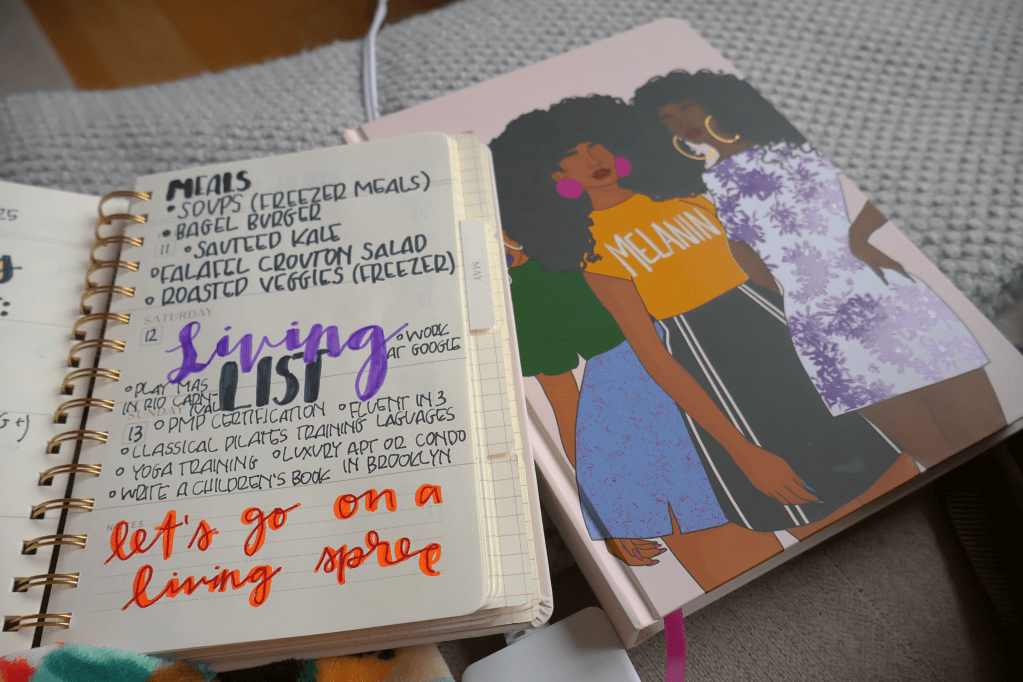 25
G +)
MEALS
• SOUPS (FREEZER MEALS)
• BAGEL BURGER
11 • SAUTEED KALE
• FALAFEL CROUTON SALAD
• ROASTED VEGGIES (FREEZER)
SATURDAY
12
Living
LIST
• WORK
AT GOOGLE
• PLAY MAS
IN RIO CARNI-
VAL
SUNDAY
13 • PMP CERTIFICATION • FLUENT IN 3
• CLASSICAL PILATES TRAINING LAGUAGES
• YOGA TRAINING • LUXURY APT OR CONDO
• WRITE A CHILDREN'S BOOK IN BROOKLYN
NOTES
let's go on a
living spree
MAY
MELANIN